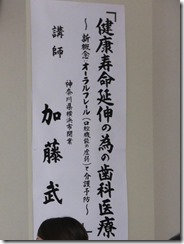 「健康寿命延伸の為の歯科医療
～新概念 オーラルフレール(口腔機能の虚弱)で介護予防～
神奈川県横浜市開業
講師
加藤武